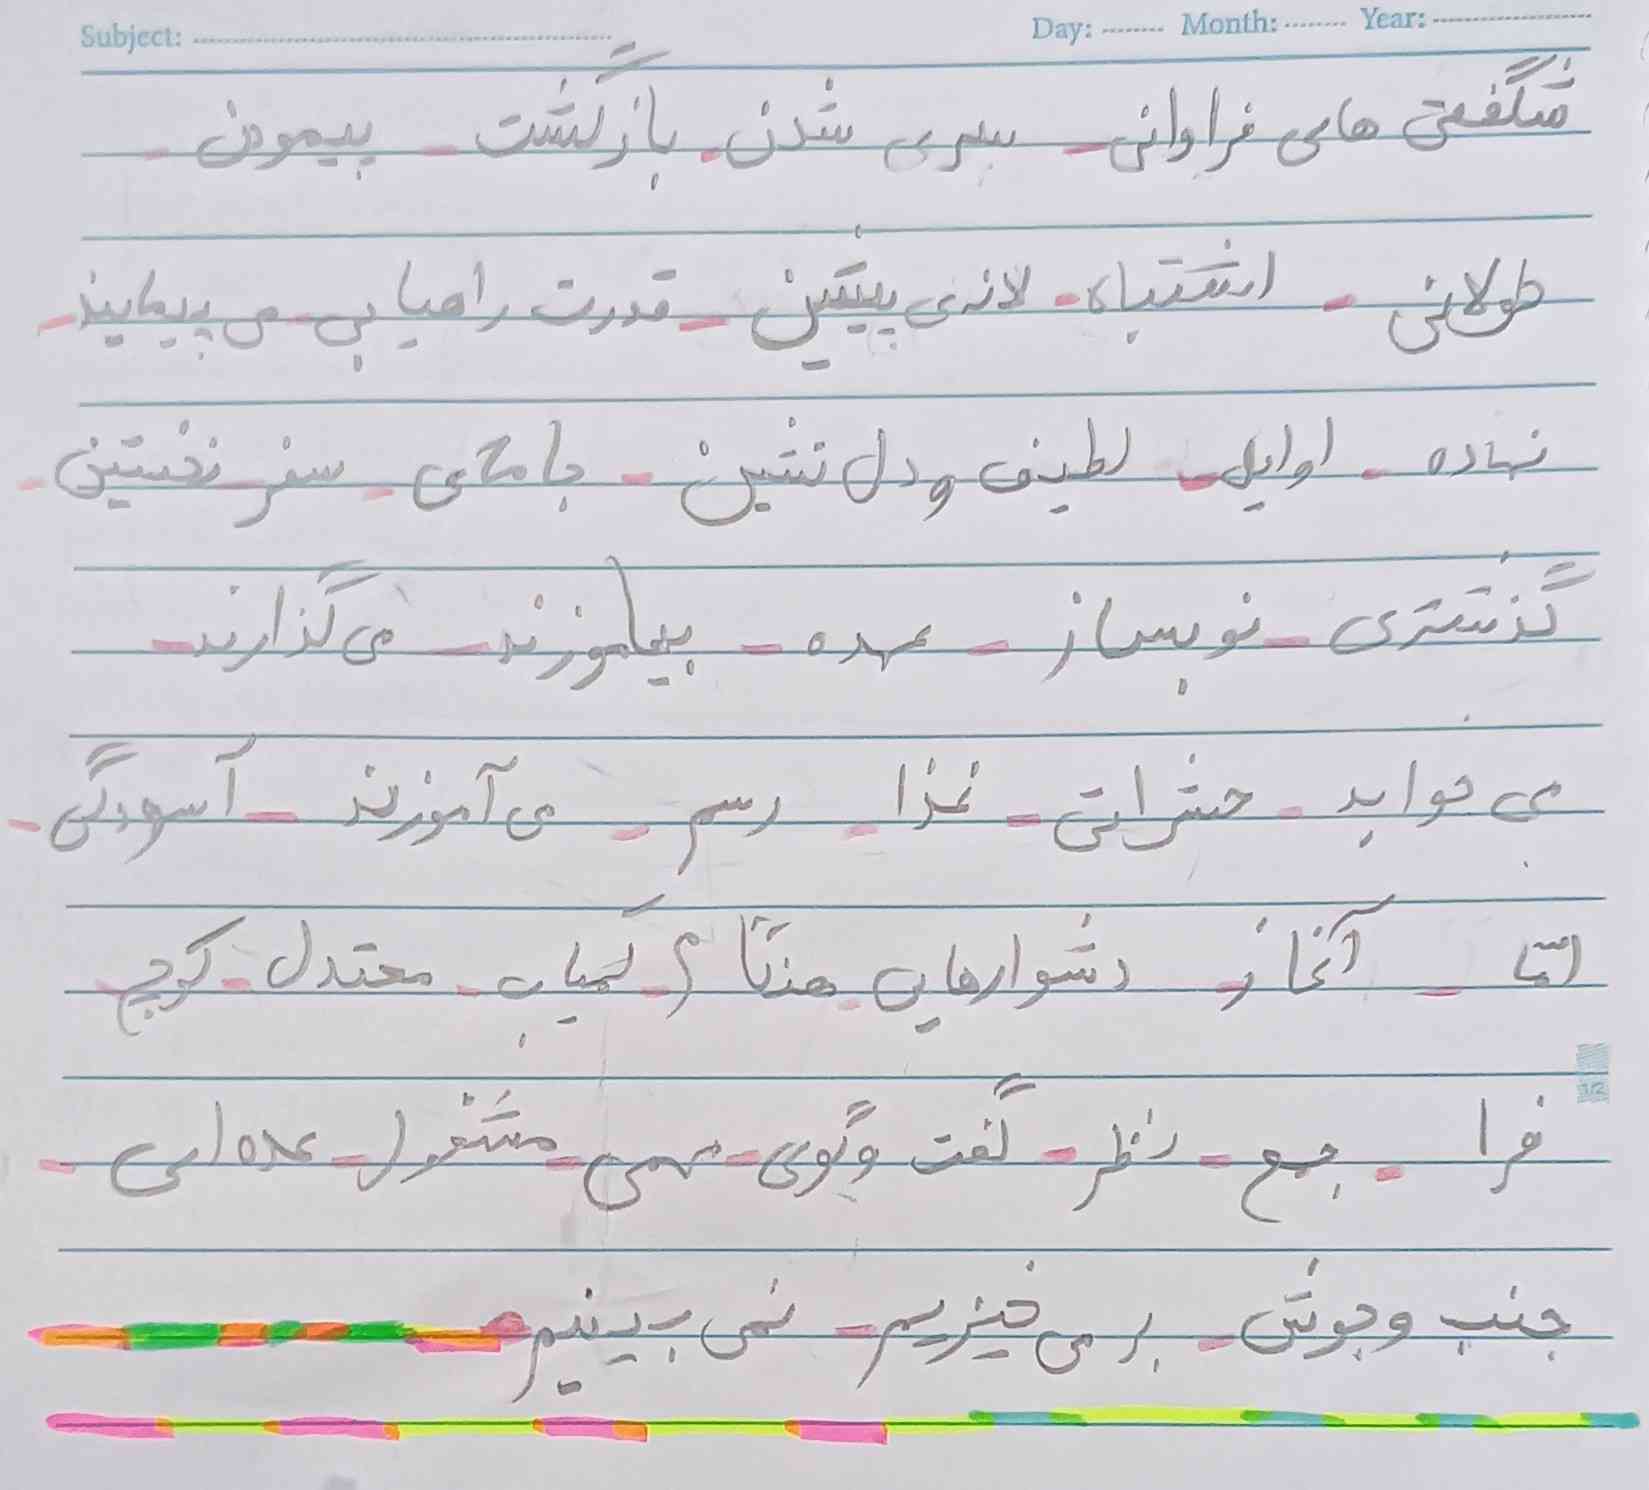 Subject: Day: Month: Year:
شگفتی هایی فراوانی - سپری شدن - بازگشت - پیمودن -
طولانی - اشتباه - لانه ی پیشین - قدرت راهیابی - می پیمایند -
نهاده - اوایل - لطیف و دل نشین - جامه ی - سفر نخستین -
گذشتری - نوبساز - عهده - بیاموزند - می گذارند -
می خوابد - حشراتی - غذا - رسم - می آموزند - آسودگی -
امّا - آغاز - دشوارهایی - هفتا؟ - کمیاب - معتدل - کوچ -
فرا - جمع - نظر - گفت و گوی - مهمی - مشغول - عده ایی -
جنب و جوش - بر می خیزیم - نمی بینیم -
1/2